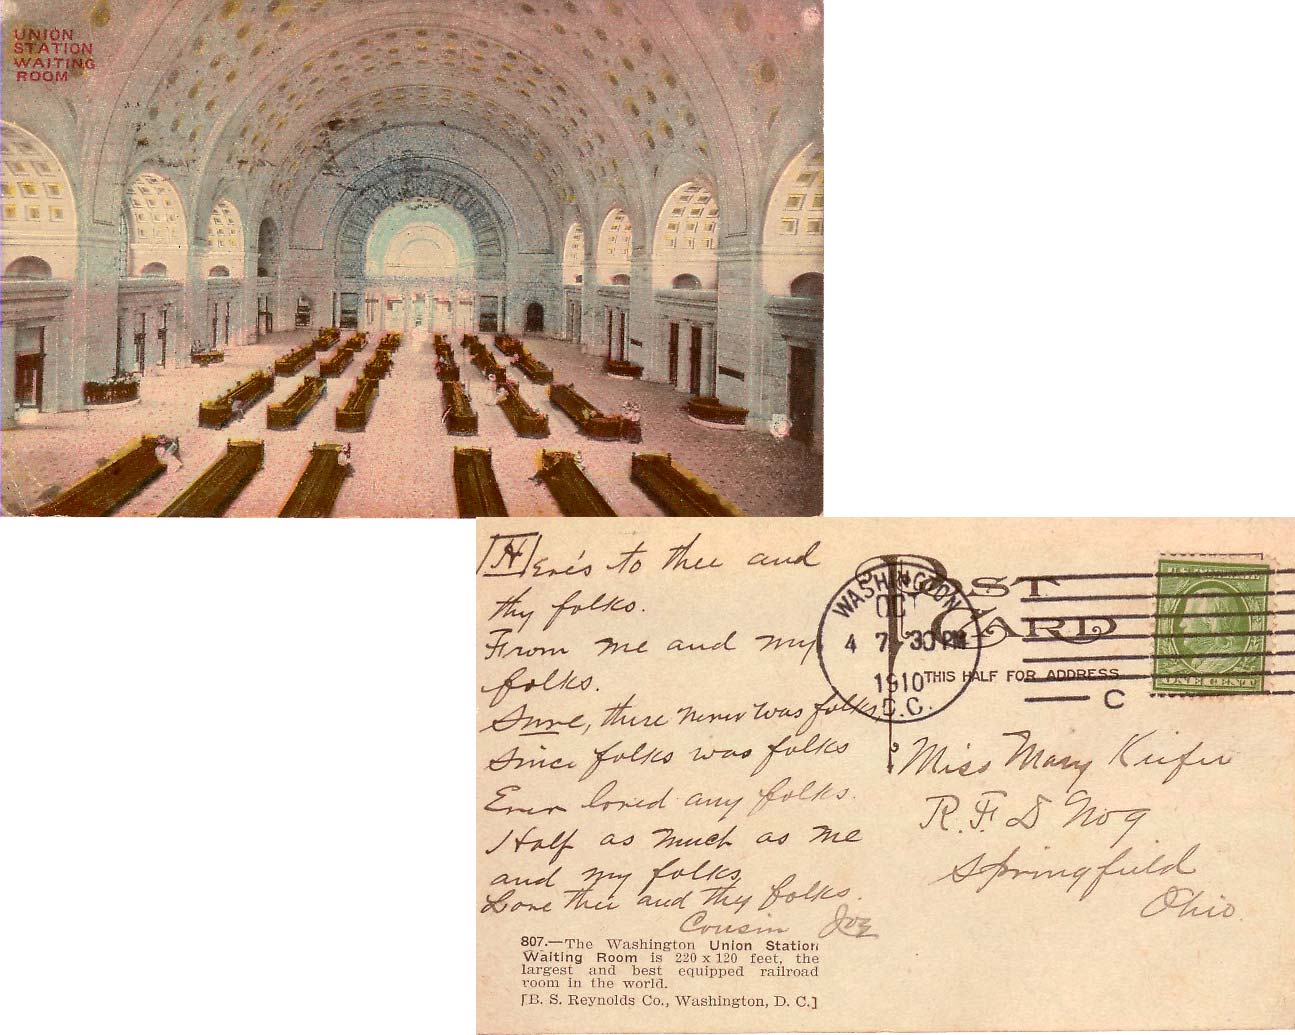 UNION
STATION
WAITING
ROOM
Here's to thee and
thy folks.
From me and my
folks.
Sure, there never was folks,
Since folks was folks
Ever loved any folks.
Half as much as me
and my folks
Love thee and thy folks.
Cousin Joe
807.—The Washington Union Station
Waiting Room is 220 x 120 feet, the
largest and best equipped railroad
room in the world.
[B. S. Reynolds Co., Washington, D. C.]
POST
CARD
THIS HALF FOR ADDRESS
WASHINGTON
OCT
4 7-30 PM
1910
D.C.
C
ONE CENT
Miss Mary Kiefer
R.F.D No 9
Springfield
Ohio.